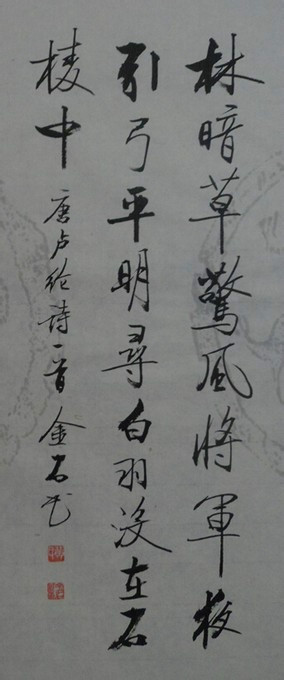 林暗草驚風將軍夜
引弓平明尋白羽沒在石
棱中 唐卢纶诗一首 金石书